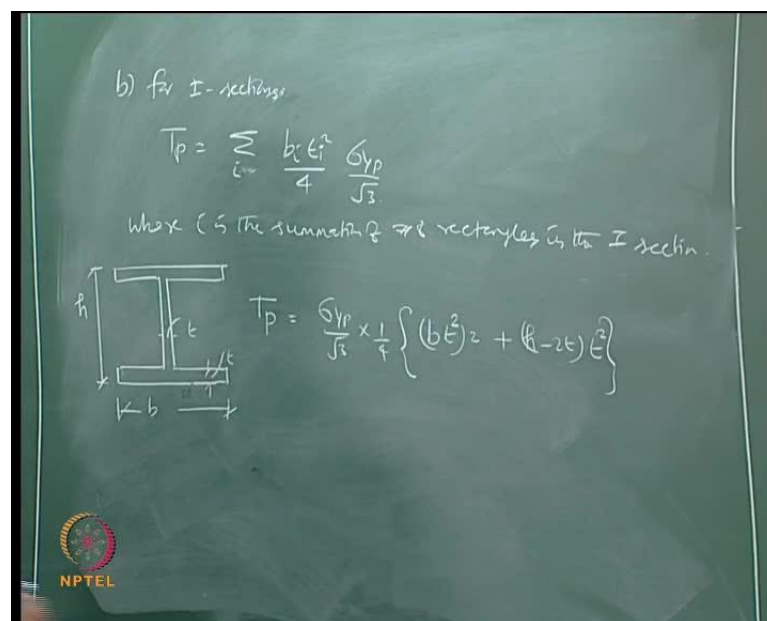 b) for I-sections
Tp = Σ bᵢ tᵢ² / 4 σyp / √3
i=
where i is the summation of rectangles in the I section.
h
t
t
b
Tp = σyp / √3 × 1/4 { (bt²)2 + (h-2t) t² }
NPTEL